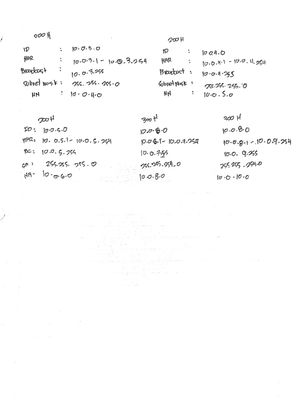 ID : 10.0.3.0
: 10.0.3.1 - 10.0.3.254
Broadcast : 10.0.3.255
Subnet mask : 255.255.255.0
NN : 10.0.4.0
200 H
ID : 10.0.4.0
: 10.0.4.1 - 10.0.4.254
Broadcast : 10.0.4.255
Subnet mask : 255.255.255.0
NN : 10.0.5.0
200 H
ID : 10.0.5.0
10.0.5.1 - 10.0.5.254
BC : 10.0.5.255
255.255.255.0
10.0.6.0
300 H
10.0.6.0
10.0.6.1 - 10.0.7.254
10.0.7.255
255.255.254.0
10.0.8.0
300 H
10.0.8.0
10.0.8.1 - 10.0.9.254
10.0.9.255
255.255.254.0
10.0.10.0